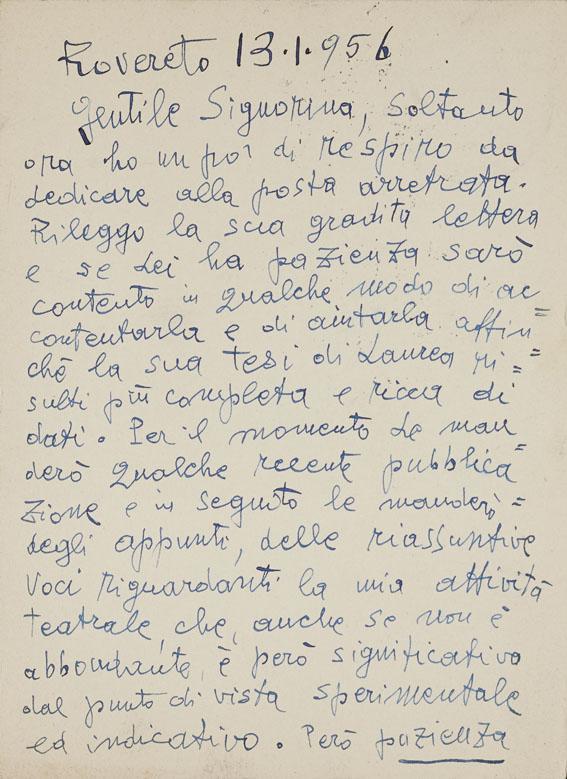 Rovereto 13.1.956
Gentile Signorina, soltanto
ora ho un po' di respiro da
dedicare alla posta arretrata.
Rileggo la sua gradita lettera
e se Lei ha pazienza sarò
contento in qualche modo di ac=
contentarla e di aiutarla affin=
chè la sua tesi di Laurea ri=
sulti più completa e ricca di
dati. Per il momento Le man=
derò qualche recente pubblica=
zione e in seguito le manderò=
degli appunti, delle riassuntive
voci riguardanti la mia attività
teatrale, che, anche se non è
abbondante, è però significativo
dal punto di vista sperimentale
ed indicativo. Però pazienza